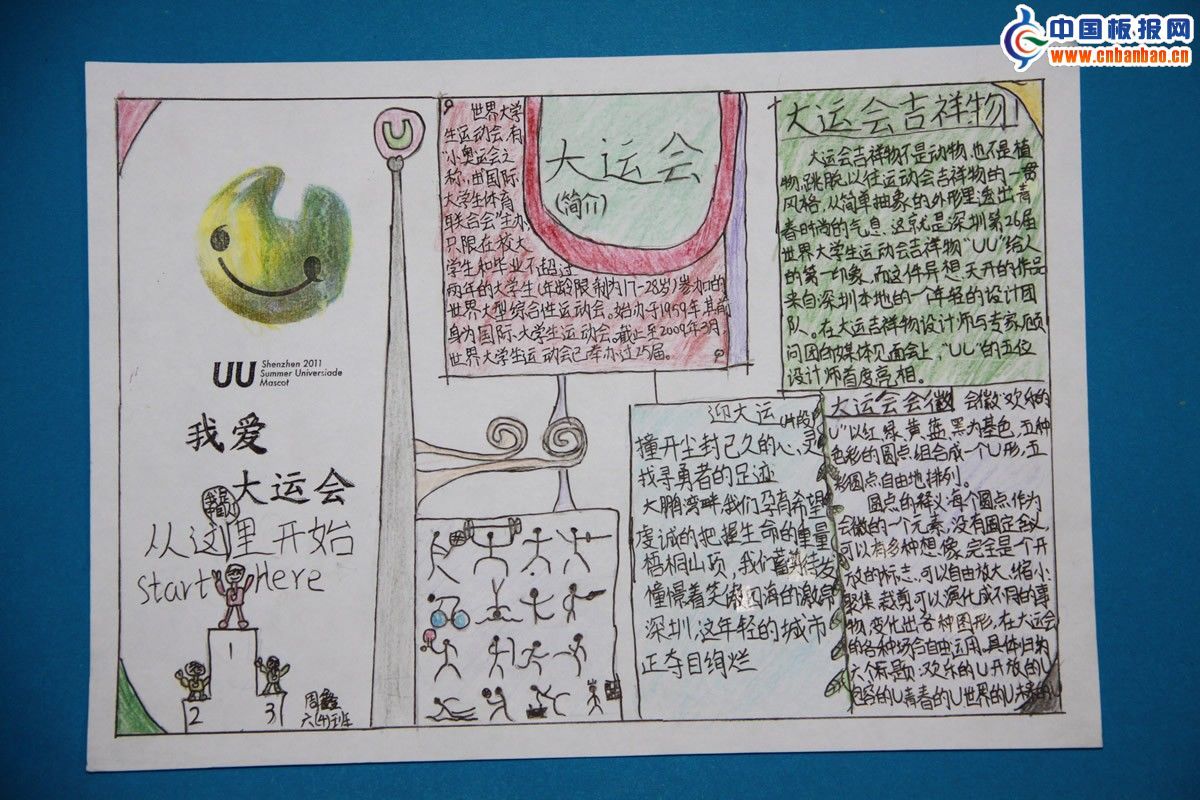 中国板报网
www.cnbanbao.cn
U
UU
Shenzhen 2011
Summer Universiade
Mascot
我爱
大运会
从这里开始
Start Here
1
2
3
周鑫
六(4)班
世界大学
生运动会,有
"小奥运会之
称,由"国际
大学生体育
联合会"主办,
只限在校大
学生和毕业不超过
两年的大学生(年龄限制为17-28岁)参加的
世界大型综合性运动会。始办于1959年,其前
身为国际大学生运动会。截止至2009年3月,
世界大学生运动会已举办过25届。
大运会
(简介)
大运会吉祥物
大运会吉祥物不是动物,也不是植
物,跳脱以往运动会吉祥物的一贯
风格,从简单抽象的外形里,透出青
春时尚的气息,这就是深圳第26届
世界大学生运动会吉祥物"UU"给人
的第一印象。而这件异想天开的作品
来自深圳本地的一个年轻的设计团
队。在大运吉祥物设计师与专家顾
问团的媒体见面会上,"UU"的五位
设计师首度亮相。
迎大运(片段)
撞开尘封已久的心灵
找寻勇者的足迹
大鹏湾畔,我们孕育希望
虔诚的把握生命的重量
梧桐山顶,我们蓄势待发
憧憬着笑傲四海的激昂
深圳,这年轻的城市
正夺目绚烂
大运会会徽 会徽"欢乐的
U"以红、绿、黄、蓝、黑为基色,五种
色彩的圆点组合成一个U形,五
彩圆点自由地排列。
圆点的释义:每个圆点作为
会徽的一个元素,没有固定含义,
可以有多种想像,完全是个开
放的标志,可以自由放大、缩小、
聚集、裁剪,可以演化成不同的事
物,变化出各种图形,在大运会
的各种场合自由运用。具体归为
六个标题:欢乐的U开放的U
的U青春的U世界的U